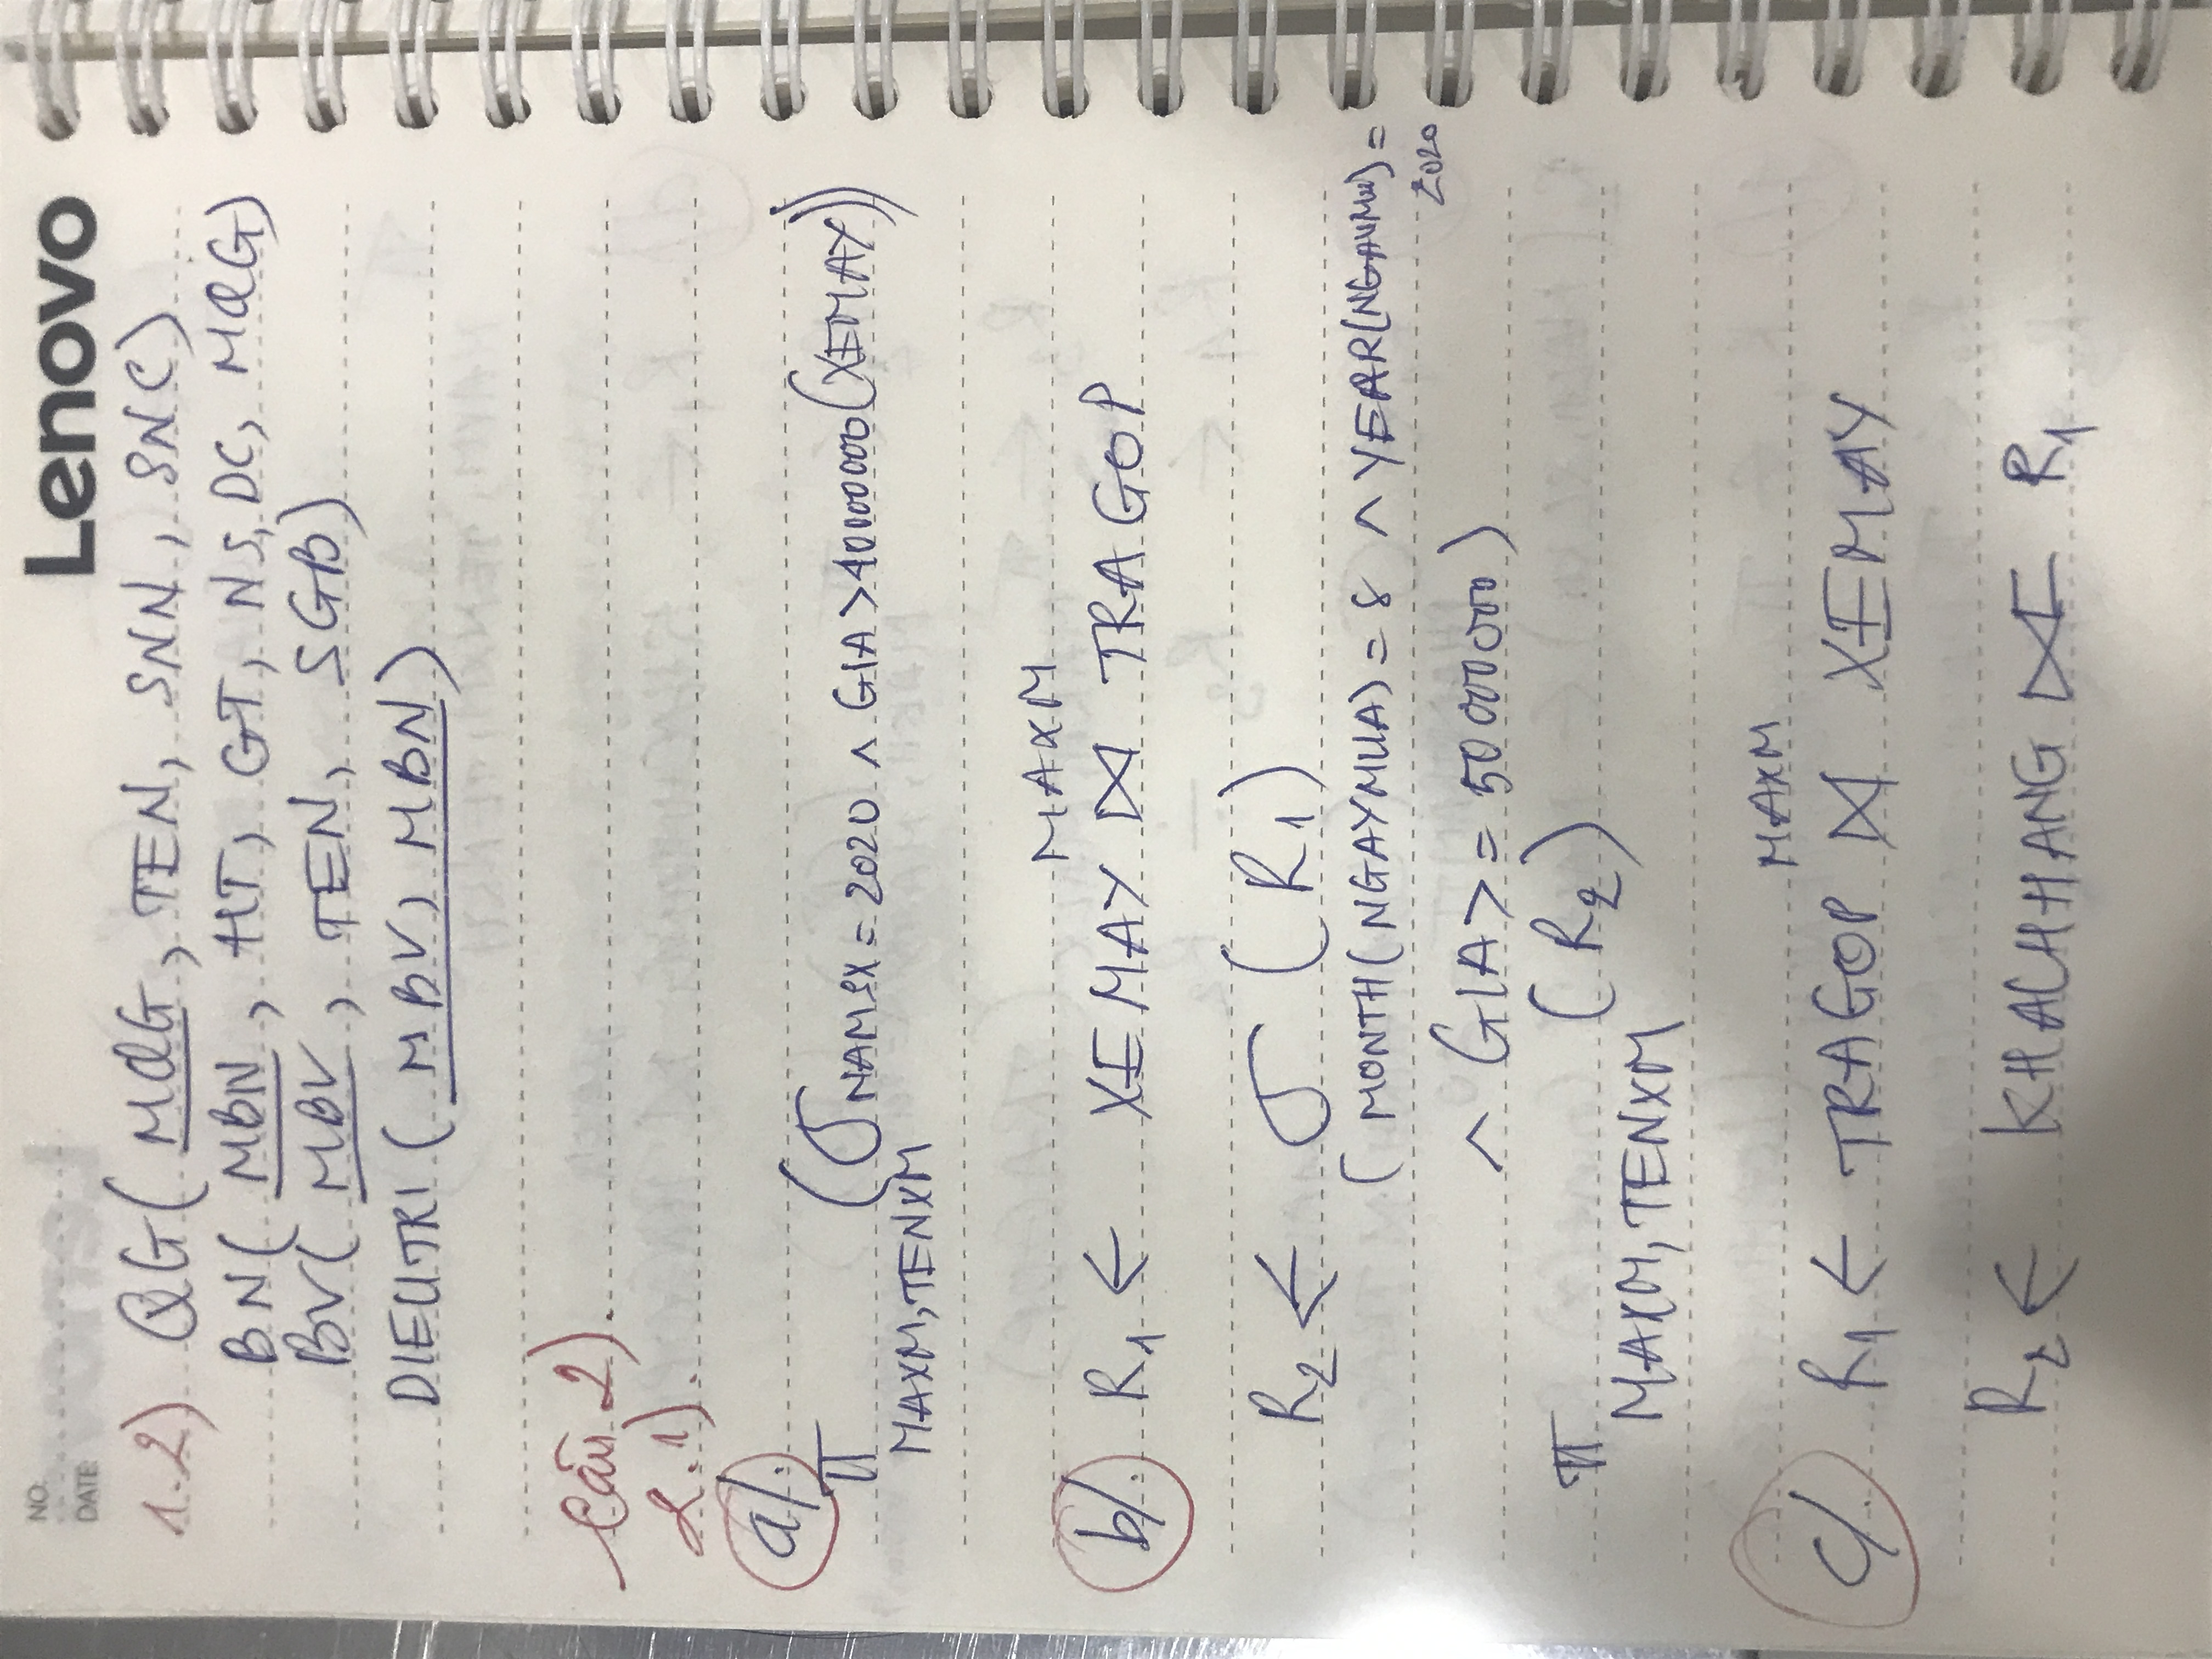 NO.
DATE:
Lenovo
1.2) QG( MQG, TEN, SNN, SNC)
BN( MBN, HT, GT, NS, DC, MQG)
BV( MBV, TEN, SGB)
DIEUTRI ( MBV, MBN)
Câu 2).
2.1).
a/.
π MAXM,TENXM (σ NAMSX = 2020 ∧ GIA > 40000000 (XEMAY))
MAXM
b/. R1 ← XEMAY ⋈ TRAGOP
R2 ← σ (R1)
( MONTH( NGAYMUA) = 8 ∧ YEAR(NGAYMUA) = 2020
∧ GIA >= 50000000)
π MAXM, TENXM (R2)
MAXM
c/. R1 ← TRAGOP ⋈ XEMAY
R2 ← KHACHHANG ⟖ R1